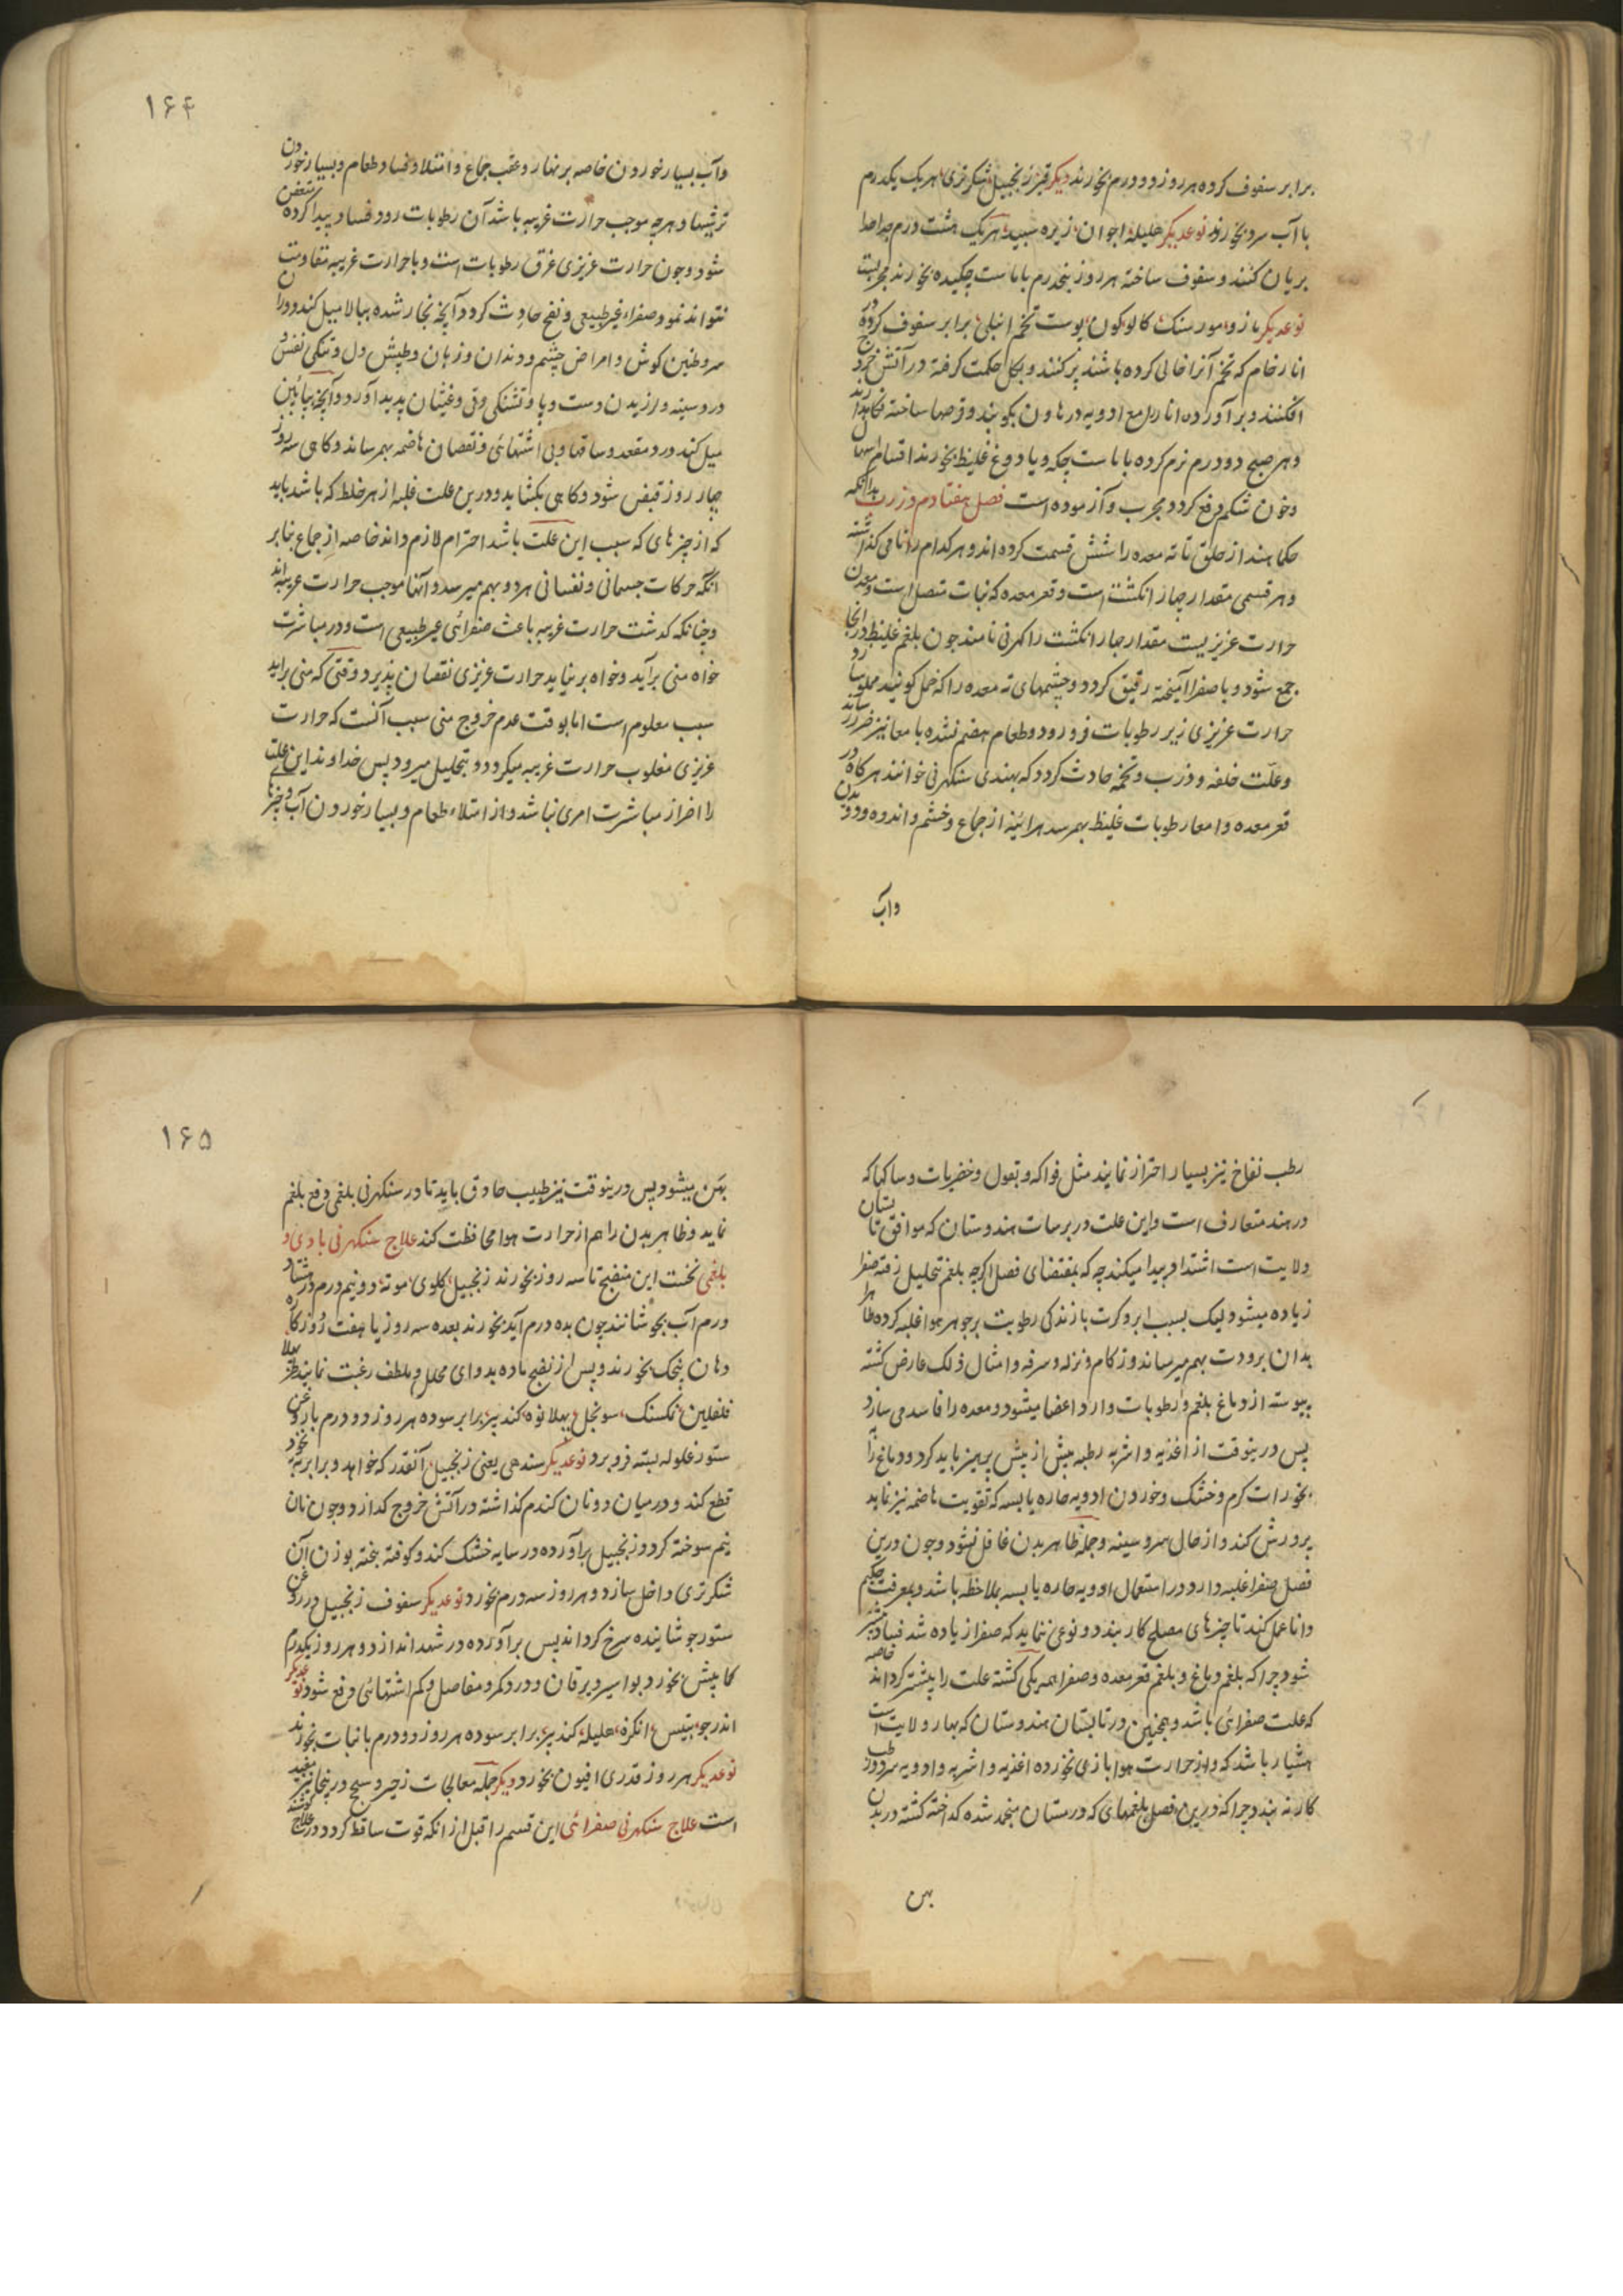 برابر سفوف کرده هر روز دو درم بخورند دیکر قیز زنجبیل شکر تری هر یک یکدرم
با آب سرد بخورند نوعدیکر هلیله اجوان زیره سپید هر یک هشت درم جدا جدا
بریان کنند و سفوف ساخته هر روز پنجدرم با ماست چکیده بخورند مجربست
نوعدیکر مازو مور سنک کالو کون پوست تخم انبلی برابر سفوف کرده در
انار خام که تخم آنرا خالی کرده باشند پر کنند و بکل حکمت کرفته در آتش خروج
افکنند و بر آورده انار را مع ادویه در هاون بکوبند و قرصها ساخته نکاهدارند
و هر صبح دو درم نرم کرده با ماست چکه و یا دوغ غلیظ بخورند اقسام اسهال
و خون شکم دفع کردد مجرب و آزموده است فصل هفتاد دوم در زرب بدانکه
حکما هند از حلق تا ته معده را شش قسمت کرده اند و هر کدام را نامی کذاشته
و هر قسمی مقدار چهار انکشت است و قعر معده که نبات متصل است و معدن
حرارت عزیزیست مقدار چهار انکشت را کهرنی نامند چون بلغم غلیظ در آنجا
جمع شود و یا صفرا آمیخته رقیق کردد و چشمهای ته معده را که خمل کویند مملو سازد
حرارت عزیزی زیر رطوبات فرو رود و طعام هضم نشده با معا نیز ضرر رساند
و علت خلفه و ذرب و تخمه حادث کردد که بهندی سنکهرنی خوانند هرکاه در
قعر معده و امعا رطوبات غلیظ بهم رسد هر آئینه از جماع و خشم و اندوه و دویدن
وآب
۱۶۴
وآب بسیار خوردن خاصه بر نهار و عقب جماع و امتلا و فساد طعام و بسیار خوردن
ترشیها و هرچه موجب حرارت غریبه باشد آن رطوبات رو و فساد پیدا کرده متعفن
شود و چون حرارت عزیزی غرق رطوبات است و با حرارت غریبه مقاومت
نتواند نمود صفراء غیر طبیعی و نفخ حادث کردد و آنچه بخار شده ببالا میل کند دوران
سر و طنین کوش و امراض چشم و دندان و زبان و طپش دل و تنکی نفس و
درد سینه و لرزیدن دست و پا و تشنکی و قی و غیثان پدید آورد و آنچه بپائین
میل کند درد مقعد و ساقها و بی اشتهائی و نقصان هاضمه بهم رساند و کاهی سه روز
چهار روز قبض شود و کاهی بکشاید و درین علت غلبه از هر خلط که باشد باید
که از چیزهای که سبب این علت باشد احترام لازم داند خاصه از جماع بنابر
انکه حرکات جسمانی و نفسانی هر دو بهم میرسد و آنها موجب حرارت غریبه اند
و چنانکه کذشت حرارت غریبه باعث صفرائی غیر طبیعی است و در مباشرت
خواه منی بر آید و خواه بر نیاید حرارت عزیزی نقصان پذیرد و وقتی که منی براید
سبب معلوم است اما بوقت عدم خروج منی سبب آنست که حرارت
عزیزی مغلوب حرارت غریبه میکردد و بتحلیل میرود پس خداوند این علت
را اضر از مباشرت امری نباشد و از امتلاء طعام و بسیار خوردن آب و چیزهای
رطب نفاخ نیز بسیار احتراز نمایند مثل فواکه و بقول و خضریات و ساکها که
در هند متعارف است و این علت در برسات هندوستان که موافق تابستان
ولایت است اشتداد پیدا میکند چه که بمقتضای فصل اکرچه بلغم تحلیل رفته صفرا
زیاده میشود لیک بسبب ابر و کرت بازندکی رطوبت بر جوهر هوا غلبه کرده ظاهر
بدان برودت بهم میرساند و زکام و نزله و سرفه و امثال ذلک عارض کشته
پیوسته از دماغ بلغم و رطوبات وارد اعضا میشود و معده را فاسد می سازد
پس درینوقت از اغذیه و اشربه رطبه بیش از پیش پرهیز باید کرد و دماغ را به
بخورات کرم و خشک و خوردن ادویه حاره یابسه که تقویت هاضمه نیز نماید
پرورش کند و از حال سر و سینه و جمله ظاهر بدن غافل نشود و چون درین
فصل صفرا غلبه دارد در استعمال ادویه حاره یابسه بملاحظه باشد و بمعرفت حکیم
دانا عمل کند تا چیزهای مصلح کار بندد و نوعی ننماید که صفرا زیاده شد فساد بیشتر
شود چرا که بلغم دماغ و بلغم قعر معده و صفرا همه یکی کشته علت را بیشتر کرداند خاصه
که علت صفرائی باشد و همچنین در تابستان هندوستان که بهار ولایت است
هشیار باشد که از حرارت هوا بازی نخورده اغذیه و اشربه و ادویه سرد و رطب
کار نه بندد چرا که درین فصل بلغمهای که در زمستان منجمد شده کداخته کشته در بدن
پهن
۱۶۵
پهن میشود پس درینوقت نیز طبیب حاذق باید تا در سنکهرنی بلغمی دفع بلغم
نماید و ظاهر بدن را هم از حرارت هوا محافظت کند علاج سنکهرنی بادی و
بلغمی نخست این منضج تا سه روز بخورند زنجبیل کلوی موته دو نیم درم در هشتاد
درم آب بجوشانند چون بده درم آید بخورند بعده سه روز یا هفت روز کاره
دهان پنجک بخورند و پس از نضج ماده بدوای محلل و ملطف رغبت نمایند
فلفلین نمکسنک سونچل بهلانوه کندیز برابر سوده هر روز دو درم با روغن
ستور غلوله بسته فرو برد نوعدیکر سندهی یعنی زنجبیل آنقدر که خواهد و برابر
قطع کند و در میان دو نان کندم کذاشته در آتش خروج کدازد و چون نان
نیم سوخته کردد زنجبیل بر آورده در سایه خشک کند و کوفته بیخته بوزن آن
شکر تری داخل سازد و هر روز سه درم بخورد نوعدیکر سفوف زنجبیل در روغن
ستور جوشانیده سرخ کرداند پس بر آورده در شهد اندازد و هر روز یکدرم
کما بیش بخورد بواسیر و یرقان و درد کمر و مفاصل و کم اشتهائی دفع شود نوعدیکر
اندرجو پتیس انکزه هلیله کندیز برابر سوده هر روز دو درم با نبات بخورند
نوعدیکر هر روز قدری افیون بخورد دیکر جمله معالجات زحیر و سحج درینجا نیز مفید
است علاج سنکهرنی صفرائی این قسم را قبل از انکه قوت ساقط کردد در علاج کوشند